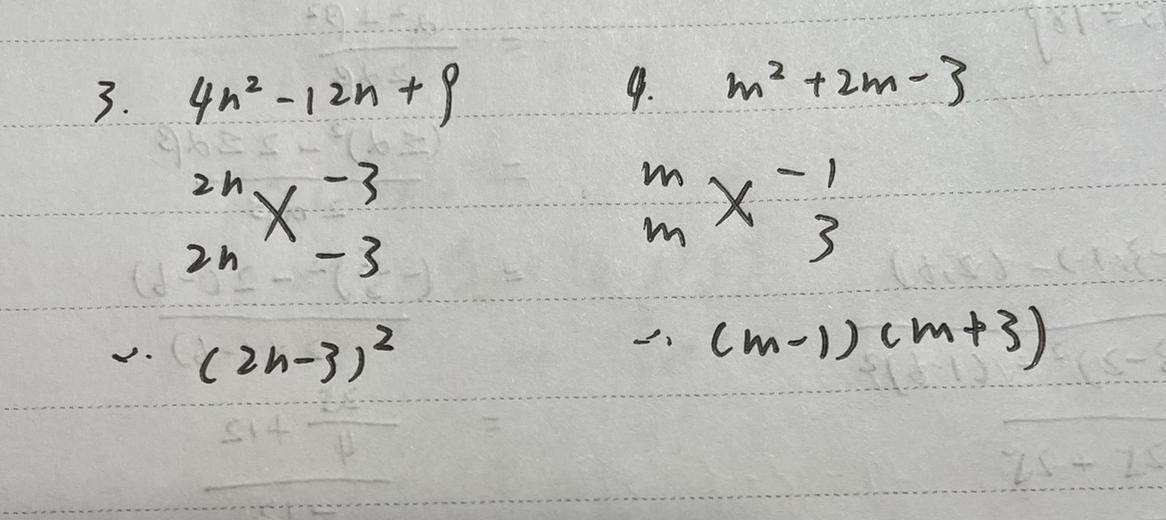 3. 4n² - 12n + 9
2n × -3
2n -3
∴ (2n-3)²
4. m² + 2m - 3
m × -1
m 3
∴ (m-1)(m+3)